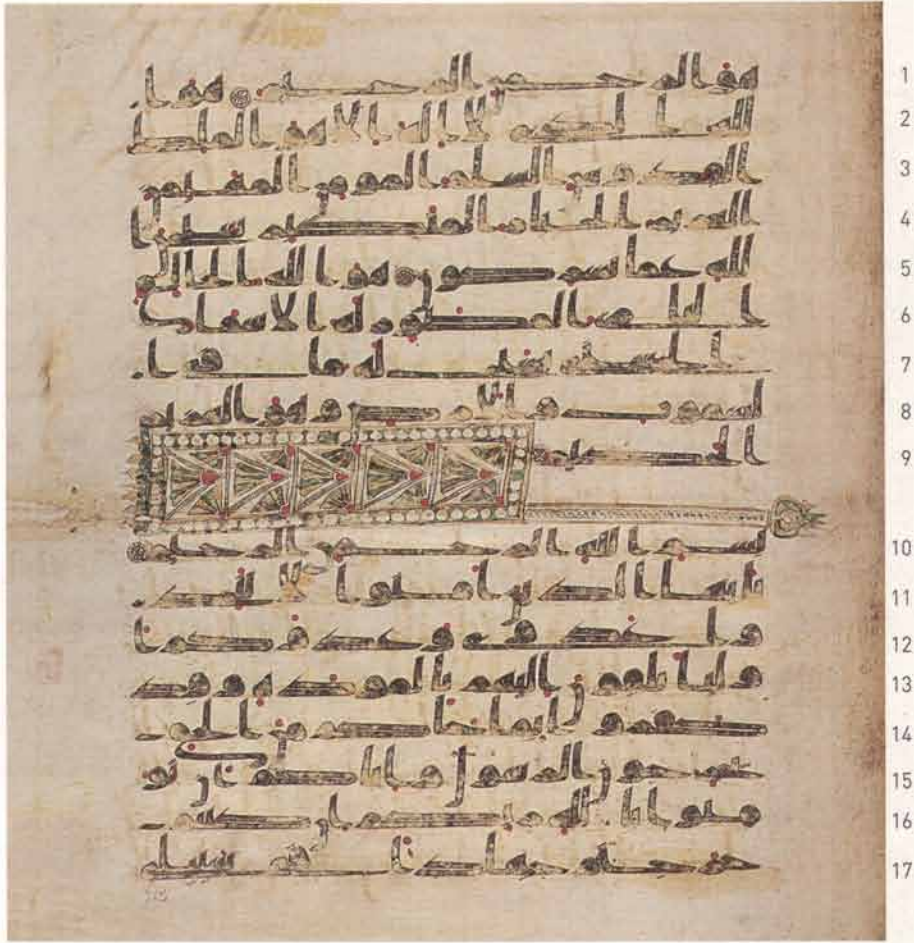 1 هو الرحمن الرحيم هو ا
2 لله الذي لا اله الا هو الملك
3 القدوس السلم المومن المهيمن
4 العزيز الجبار المتكبر سبحن ا
5 لله عما يشركون هو الله الخالق
6 البارئ المصور له الاسما
7 الحسنى يسبح له ما في ا
8 لسموت والارض وهو العزيز
9 الحكيم
10 بسم الله الرحمن الرحيم
11 يايها الذين امنوا لا تتخذ
12 وا عدوي وعدوكم ا
13 وليا تلقون اليهم بالمودة وقد
14 كفروا بما جاكم من الحق
15 يخرجون الرسول واياكم ان تو
16 منوا بالله ربكم ان كنتم
17 خرجتم جهدا في سبيلي